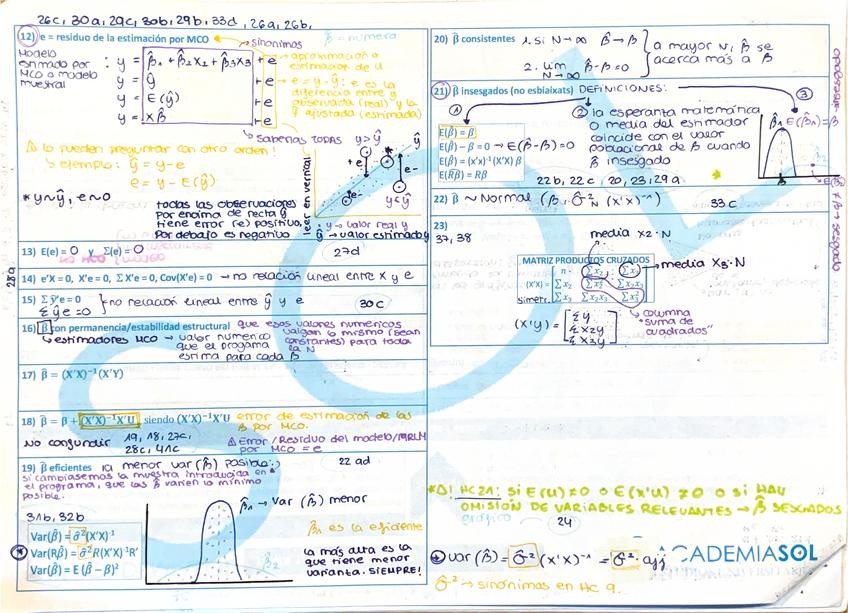 26c, 30a, 29c, 30b, 29b, 33d, 26a, 26b,
12) e = residuo de la estimación por MCO
sinónimos
β̂ = número
Modelo
estimado por
MCO o modelo
muestral
: y = β̂₁ + β̂₂x₂ + β̂₃x₃ + e
y = ŷ + e
y = E(ŷ) + e
y = xβ̂ + e
→ aproximación o
estimador de u
→ e = y - ŷ : e es la
diferencia entre y
observada (real) y la
ŷ ajustada (estimada)
→ saberlas TODAS
⚠ lo pueden preguntar con otro orden!
→ ejemplo: ŷ = y - e
e = y - E(ŷ)
* y ~ ŷ, e ~ 0
todas las observaciones
por encima de recta ŷ
tiene error (e) positivo,
por debajo es negativo
leer en vertical
y > ŷ
ŷ
+e
e-
e-
y < ŷ
y → valor real y
ŷ → valor estimado y
13) E(e) = 0 y Σ(e) = 0
27d
28a
14) e'X = 0, X'e = 0, ΣX'e = 0, Cov(X'e) = 0 → no relación lineal entre x y e
15) Σŷ'e = 0
Σŷe = 0 } no relación lineal entre ŷ y e
30c
16) β̂ con permanencia/estabilidad estructural que esos valores numéricos
valgan lo mismo (sean
constantes) para toda
la N
→ estimadores MCO → valor numérico
que el programa
estima para cada β
17) β̂ = (X'X)⁻¹(X'Y)
18) β̂ = β + (X'X)⁻¹X'U siendo (X'X)⁻¹X'U error de estimación de las
β por MCO.
No confundir 19, 18, 27c,
28c, 41c
⚠ Error/Residuo del modelo/MRLM
por MCO = e
19) β̂ eficientes la menor var(β̂) posible:,
si cambiásemos la muestra introducida en
el programa, que las β̂ varíen lo mínimo
posible.
22 ad
31b, 32b
Var(β̂) = σ̂²(X'X)⁻¹
Var(Rβ̂) = σ̂²R(X'X)⁻¹R'
Var(β̂) = E(β̂ - β)²
β̂₁ → var(β̂) menor
β̂₁ es la eficiente
β̂₂
la más alta es la
que tiene menor
varianza. SIEMPRE!
20) β̂ consistentes 1. si N→∞ β̂ → β
2. lim N→∞ β̂ - β = 0
} a mayor N, β̂ se
acerca más a β
21) β̂ insesgados (no esbiaixats) DEFINICIONES:
①
②
③
E(β̂) = β
E(β̂) - β = 0 → E(β̂ - β) = 0
E(β̂) = (x'x)⁻¹(X'X) β
E(Rβ̂) = Rβ
la esperanza matemática
o media del estimador
coincide con el valor
poblacional de β cuando
β̂ insesgado
β̂₁ E(β̂₁) = β
β̂₂
β
≠ β → sesgado
22b, 22c, 20, 23, 29a
22) β̂ ~ Normal (β, σ̂²N (X'X)⁻¹)
33c
23)
37, 38
media x2 · N
MATRIZ PRODUCTOS CRUZADOS
(X'X) = [ n · Σx₂ Σx₃
Σx₂ Σx₂² Σx₂x₃
Σx₃ Σx₂x₃ Σx₃² ]
simetr.
→ media x₃ · N
→ columna
"suma de
cuadrados"
(X'Y) = [ Σy
Σx2y
Σx3y ]
* Δ! HC21: si E(U) ≠ 0 o E(x'U) ≠ 0 o si HAY
OMISIÓN DE VARIABLES RELEVANTES → β̂ SESGADOS
gráfico
24
var(β̂) = σ̂²(x'x)⁻¹ = σ̂² · ajj
σ̂² → sinónimos en HC 9.
ACADEMIASOL